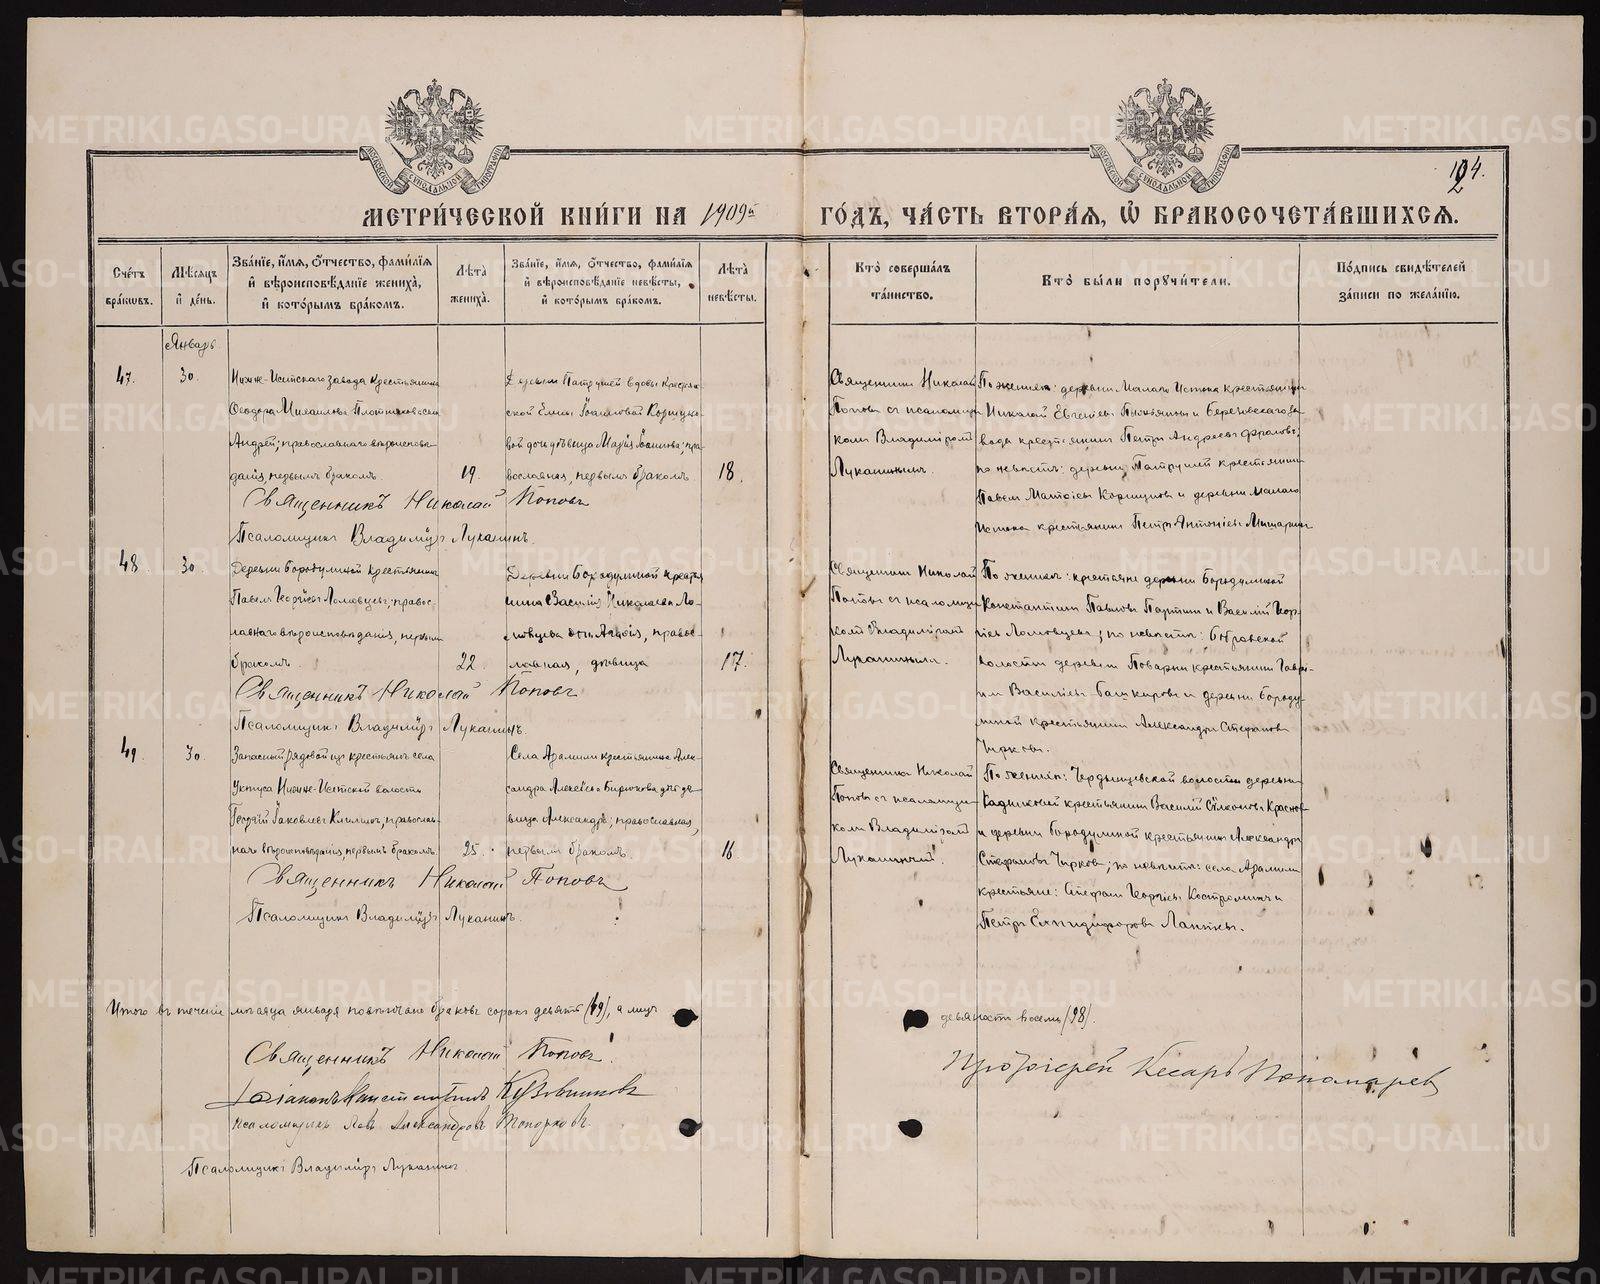 МЕТРИ́ЧЕСКОЙ КНИ́ГИ НА 1909й ГО́ДЪ, ЧА́СТЬ ВТОРА́Я, Ѡ БРАКОСОЧЕТА́ВШИХСЯ.
124.
МОСКОВСКОЙ СѴНОДАЛЬНОЙ ТИПОГРАФІИ
МОСКОВСКОЙ СѴНОДАЛЬНОЙ ТИПОГРАФІИ
Сче́тъ бра́кѡвъ.
Мѣ́сяцъ и҆ де́нь.
Зва́нїе, и҆́мѧ, ѻ҆́тчество, фами́лїѧ
и҆ вѣроисповѣ́данїе жениха̀,
и҆ кото́рымъ бра́комъ.
Лѣ́та жениха̀.
Зва́нїе, и҆́мѧ, ѻ҆́тчество, фами́лїѧ
и҆ вѣроисповѣ́данїе невѣ́сты,
и҆ кото́рымъ бра́комъ.
Лѣ́та невѣ́сты.
Кто̀ соверша́лъ та́инство.
Кто̀ бы́ли порꙋчи́тели.
По́дпись свидѣ́телей за́писи по жела́нїю.
Январь
47.
30.
Нижне-Исетскаго завода крестьянина
Ѳеодора Михаилова Плотникова сын
Андрей; православнаго вѣроиспове-
данія, первымъ бракомъ.
19.
Деревни Патрушей вдовы крестьян-
ской Елены Іоанновой Коршуно-
вой дочь дѣвица Марія Іоаннова; пра-
вославная, первымъ бракомъ
18.
Священник Николай
Попов с псаломщи-
ком Владиміром
Луканинымъ.
По женихѣ: деревни Малаго Истока крестьянин
Николай Евгеніевъ и Березовскаго за-
вода крестьянин Петръ Андреевъ Фроловъ;
по невѣстѣ: деревни Патрушей крестьянин
Павелъ Матвіевъ Коршунов и деревни Малаго
Истока крестьянин Петръ Антоніевъ Мишарин
Священникъ Николай Поповъ
Псаломщикъ Владиміръ Луканинъ.
48.
30.
Деревни Бородулиной крестьянин
Павелъ Георгіевъ Ломовцевъ, правос-
лавнаго вѣроисповѣданія, первым
бракомъ.
22.
Деревни Бородулиной крестья-
нина Василія Николаева Ло-
мовцева дочь, правос-
лавная, дѣвица
17.
Священник Николай
Попов с псаломщи-
ком Владиміром
Луканиным.
По женихѣ: крестьяне деревни Бородулиной
Константин Павлов Партин и Василій Геор-
гіев Ломовцевъ; по невѣстѣ:
волости деревни Поварни крестьянин Гаври-
ил Васильев Башкиров и деревни Бороду-
линой крестьянин Александръ Стефанов
Чирков.
Священникъ Николай Поповъ
Псаломщикъ Владиміръ Луканинъ.
49.
30.
Запасный рядовой из крестьянъ села
Уктуса Нижне-Исетской волости
Георгій Іаковлев Климинъ, православ-
наго вѣроисповѣданія, первымъ бракомъ.
25.
Села Арамили крестьянина Алек-
сандра Алексѣева Бирюкова дочь дѣ-
вица Александра; православная,
первымъ бракомъ.
16
Священник Николай
Попов с псаломщи-
комъ Владиміром
Луканинымъ.
По женихѣ: волости деревни
Кадниковой крестьянин Василій
и деревни Бородулиной крестьянин Александръ
Стефановъ Чирков; по невѣстѣ: села Арамили
крестьяне: Стефан Георгіев Костромин и
Петръ Елпидифоров Лаптев.
Священникъ Николай Поповъ
Псаломщикъ Владиміръ Луканинъ.
Итого въ теченіи мѣсяца января повѣнчано браковъ сорокъ девять (49), а лицъ девяносто восемь (98).
Священникъ Николай Поповъ.
Протоіерей Кесарь Пономарев
Діаконъ Константинъ Кузовниковъ
Псаломщикъ Левъ Александровъ Топорковъ.
Псаломщикъ Владиміръ Луканинъ.
METRIKI.GASO-URAL.RU